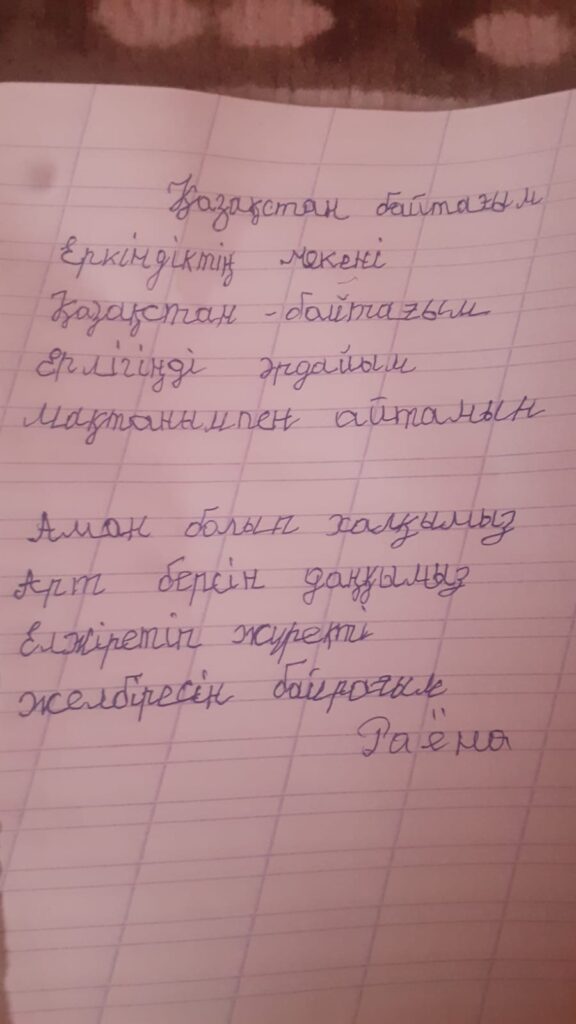 Қазақстан байтағым
Еркіндіктің мекені
Қазақстан - байтағым
Ерлігіңді әрдайым
Мақтанымпен айтамын
Аман болып халқымыз
Арт берсін даңқымыз
Елжіретіп жүректі
Желбіресін байрағым
Раёна